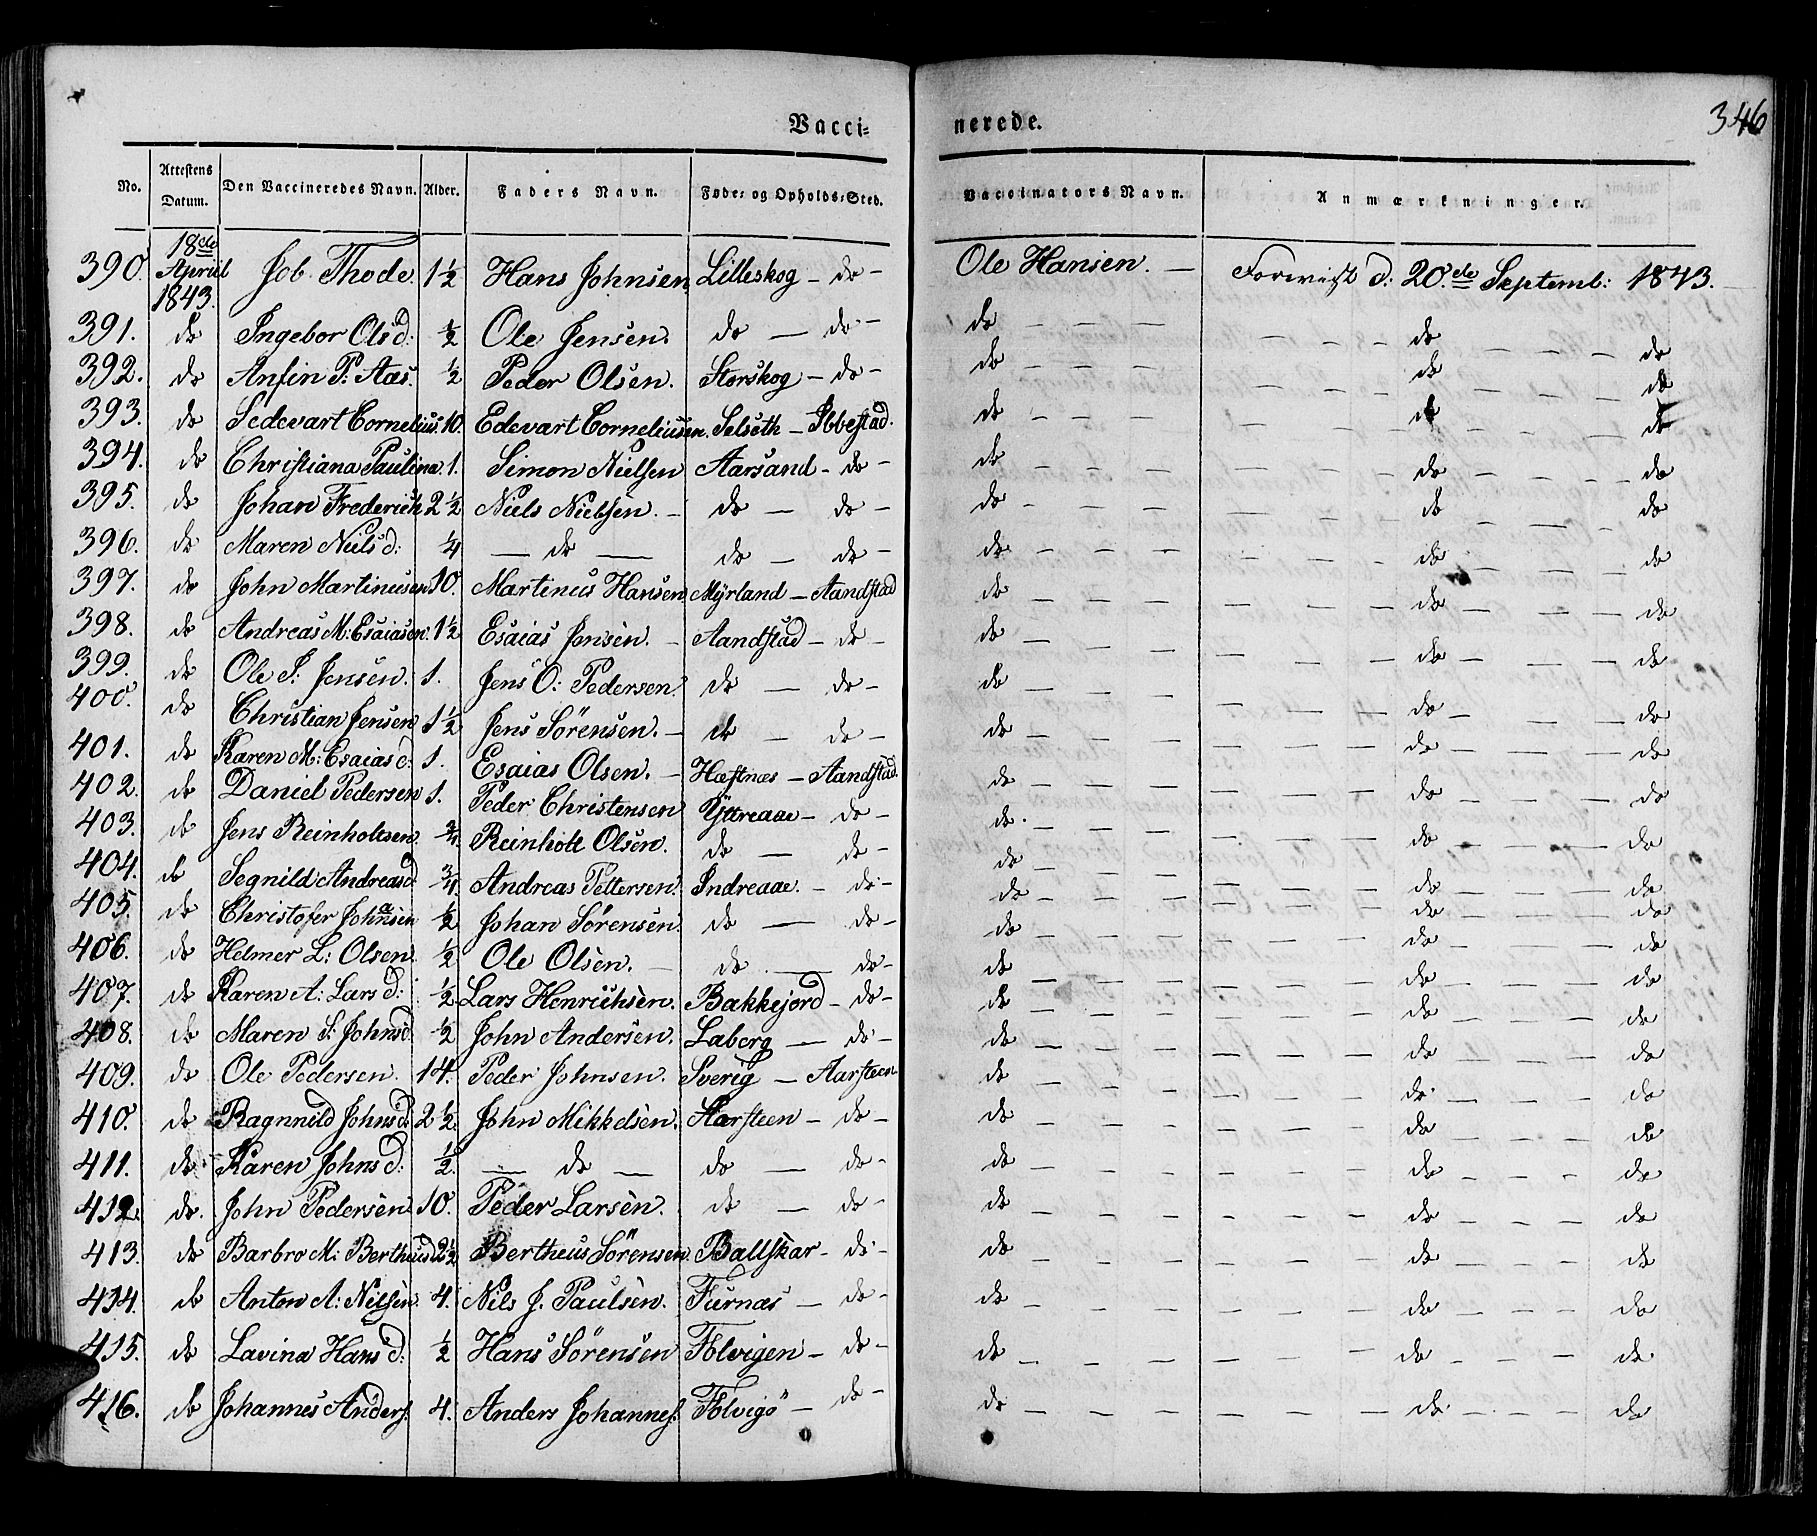 Vacci= nerede. 346
No. Attestens Datum. Den Vaccineredes Navn. Alder. Faders Navn. Føde= og Opholds=Sted. Vaccinators Navn. Anmærkninger.
390. 18de April 1843. Job. Thode. 1½ Hans Johnsen. Lilleskog – do – Ole Hansen. – Forevist d: 20de Septemb: 1843.
391. do Ingebor Olsd: ½ Ole Jensen. do – do – do – – – – – do – – – do
392. do Anfin P: Aas. ½ Peder Olsen. Storskog – do – do – – – – – do – – – do
393. do Sedevart Cornelius. 10. Edevart Corneliussen. Selseth – Ibbestad. do – – – – – do – – – do
394. do Christiana Paulina. 1. Simon Nielsen Aarsand – do – do – – – – – do – – – do
395. do Johan Frederich 2½ Niels Nielsen. – do – do – do – – – – – do – – – do
396. do Maren Neilsd: ¼ – do – do – do – do – – – – – do – – – do
397. do John Martinussen 10. Martinus Hansen Myrland – Aandstad do – – – – – do – – – do
398. do Andreas M: Esaiasen. 1½ Esaias Jonsen. – Aandstad – do – do – – – – – do – – – do
399. do Ole J: Jensen. 1. Jens O: Pedersen. do – do – do – – – – – do – – – do
400. do Christian Jensen 1½ Jens Sörensen. – do – do – do – – – – – do – – – do
401. do Karen M: Esaiasd: 1. Esaias Olsen. – Hæstnæs – Aandstad. do – – – – – do – – – do
402. do Daniel Pedersen 1. Peder Christensen Yttreaae – do – do. – – – – – do – – – do
403. do Jens Reinholtsen. ¾ Reinholt Olsen. do – do – do – – – – – do – – – do
404. do Segnild Andreasd ¾ Andreas Pettersen. Indreaae. – do – do – – – – – do – – – do
405. do Christofer Johansen ½ Johan Sörensen. do – do – do – – – – – do – – – do
406. do Helmer L: Olsen. ½ Ole Olsen. – do – do – do – – – – – do – – – do
407. do Karen A: Larsd: ½ Lars Henrichsen. Bakkejord – do – do – – – – – do – – – do
408. do Maren S: Johnsd. ½ John Andersen. Laberg – do – do – – – – – do – – – do
409. do Ole Pedersen. 14. Peder Johnsen. Sverig – Aarsteen do – – – – – do – – – do
410. do Ragnnild Johnsd. 2½ John Mikkelsen. Aarsteen – do – do – – – – – do – – – do
411. do Karen Johnsd: ½. – do – do – do – do – – – – – do – – – do
412. do. John Pedersen 10. Peder Larsen. do – do – do – – – – – do – – – do
413. do Barbro M: Bertheusd 2½ Bertheus Sörensen. Ballskar – do – do – – – – – do – – – do
414. do Anton A: Nielsen. 4. Nils J. Paulsen. Furnæs – do – do – – – – – do – – – do
415. do Lavina Hansd: ½ Hans Sörensen Folvigen – do – do – – – – – do – – – do
416. do Johannes Anders. 4. Anders Johannes. Folvigö – do – do – – – – – do – – – do